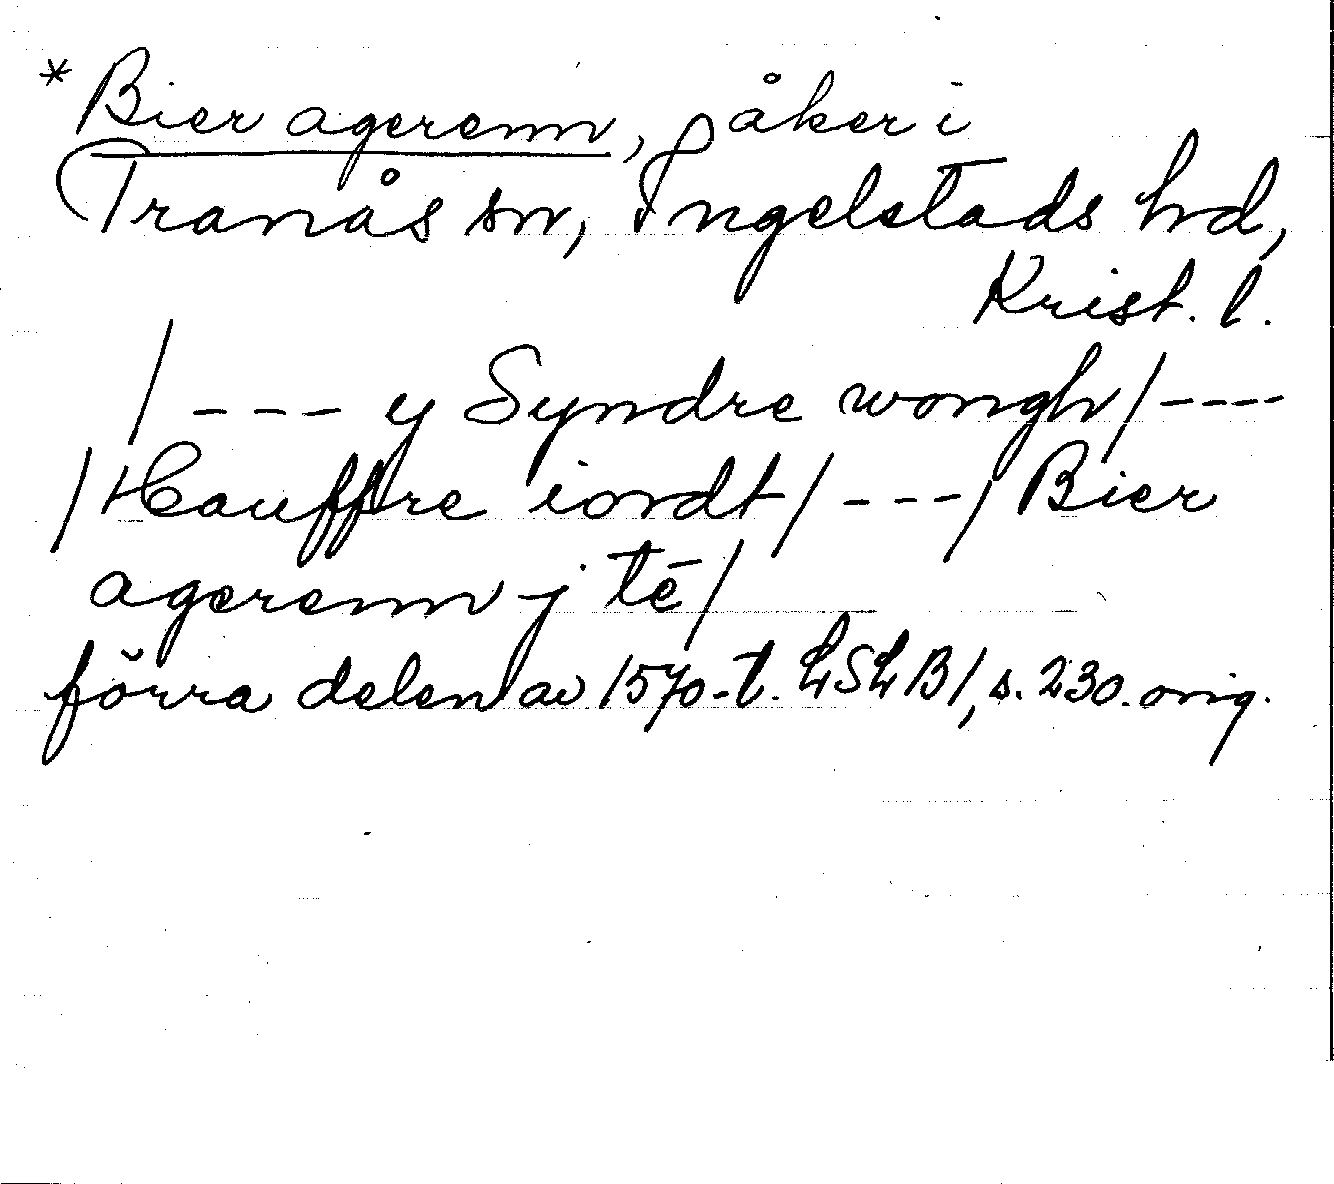 * Bier agerenn, åker i
Tranås sn, Ingelstads hd,
Krist. l.
/ - - - y Syndre wongh / - - - -
/ Hauffre iordt / - - - / Bier
agerenn j tē /
förra delen av 1570-t. LSLB1, s. 230. orig.